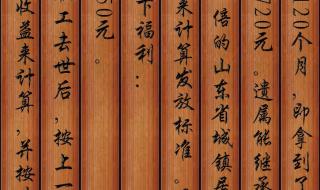 120个月，即拿到了
720元。遗属能继承
倍的山东省城镇居
来计算发放标准。
下福利：
50元。
工去世后，按上一
收益来计算，并按